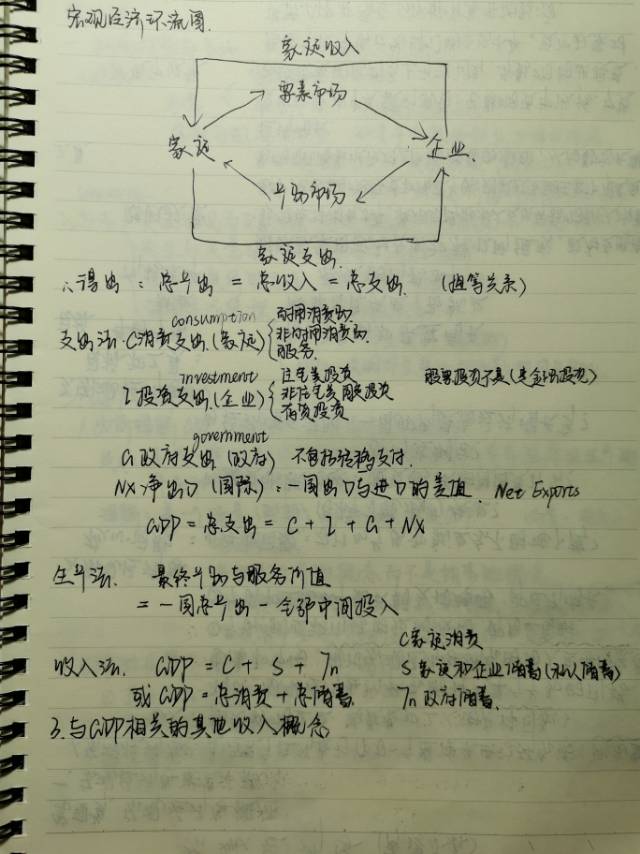 宏观经济环流图.
家庭收入
要素市场
家庭 企业.
产品市场
家庭支出.
∴得出: 总产出 = 总收入 = 总支出. (恒等关系)
consumption 耐用消费品
支出法: C消费支出.(家庭) 非耐用消费品
服务.
investment 住宅类投资 股票投资不是(是金融投资)
I 投资支出.(企业) 非住宅类固定投资
存货投资
government
G 政府支出 (政府) 不包括转移支付.
NX 净出口 (国际): 一国出口与进口的差值. Net Exports
GDP = 总支出 = C + I + G + NX
生产法. 最终产品与服务价值
= 一国总产出 - 全部中间投入
C家庭消费
收入法. GDP = C + S + Tn S 家庭和企业储蓄(私人储蓄)
或 GDP = 总消费 + 总储蓄. Tn 政府储蓄.
3.与GDP相关的其他收入概念